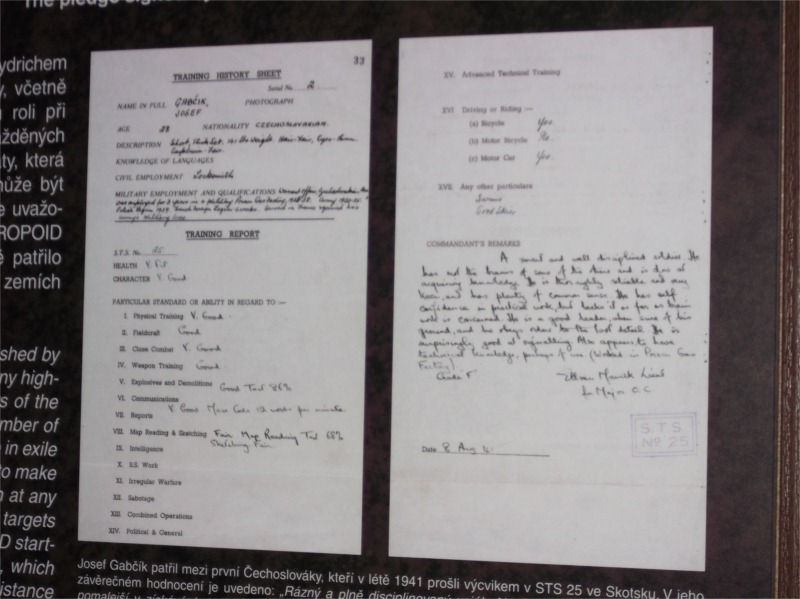 The pledge
ydrichem
y, včetně
roli při
ažděných
ty, která
může být
e uvažo-
ROPOID
ě patřilo
zemích
shed by
ny high-
s of the
mber of
in exile
to make
n at any
targets
D start-
, which
istance
33
TRAINING HISTORY SHEET
Serial No. 2
NAME IN FULL GABČIK, PHOTOGRAPH
JOSEF
AGE 28 NATIONALITY CZECHOSLOVAKIAN.
DESCRIPTION Short,
KNOWLEDGE OF LANGUAGES
CIVIL EMPLOYMENT Locksmith
MILITARY EMPLOYMENT AND QUALIFICATIONS Warrant Officer
was employed for 3 years in a Military Poison Gas
TRAINING REPORT
S.T.S. No. 25.
HEALTH V. Fit.
CHARACTER V. Good
PARTICULAR STANDARD OR ABILITY IN REGARD TO :—
I. Physical Training V. Good.
II. Fieldcraft Good
III. Close Combat V. Good
IV. Weapon Training Good.
V. Explosives and Demolitions Good Test 86%
VI. Communications
V. Good Morse Code 12 words per minute.
VII. Reports
VIII. Map Reading & Sketching Fair Map Reading Test 68%
Sketching Fair
IX. Intelligence
X. S.S. Work
XI. Irregular Warfare
XII. Sabotage
XIII. Combined Operations
XIV. Political & General
XV. Advanced Technical Training
XVI Driving or Riding :—
(a) Bicycle Yes
(b) Motor Bicycle No.
(c) Motor Car Yes.
XVII. Any other particulars
Swims
COMMANDANT'S REMARKS
A smart and well disciplined soldier. He
has not the brains of some of the others and is slow at
acquiring knowledge. He is thoroughly reliable and very
keen, and has plenty of common sense. He has self
confidence in practical work, but lacks it as far as brain
work is concerned. He is a good leader, when sure of his
ground, and he obeys orders to the last detail. He is
surprisingly good at signalling. Also appears to have
technical knowledge, perhaps of use (Worked in Poison Gas
Factory)
for Major O.C.
S.T.S.
No. 25
Date 8 Aug
Josef Gabčík patřil mezi první Čechoslováky, kteří v létě 1941 prošli výcvikem v STS 25 ve Skotsku. V jeho
závěrečném hodnocení je uvedeno: „Rázný a plně disciplinovaný
pomalejší v